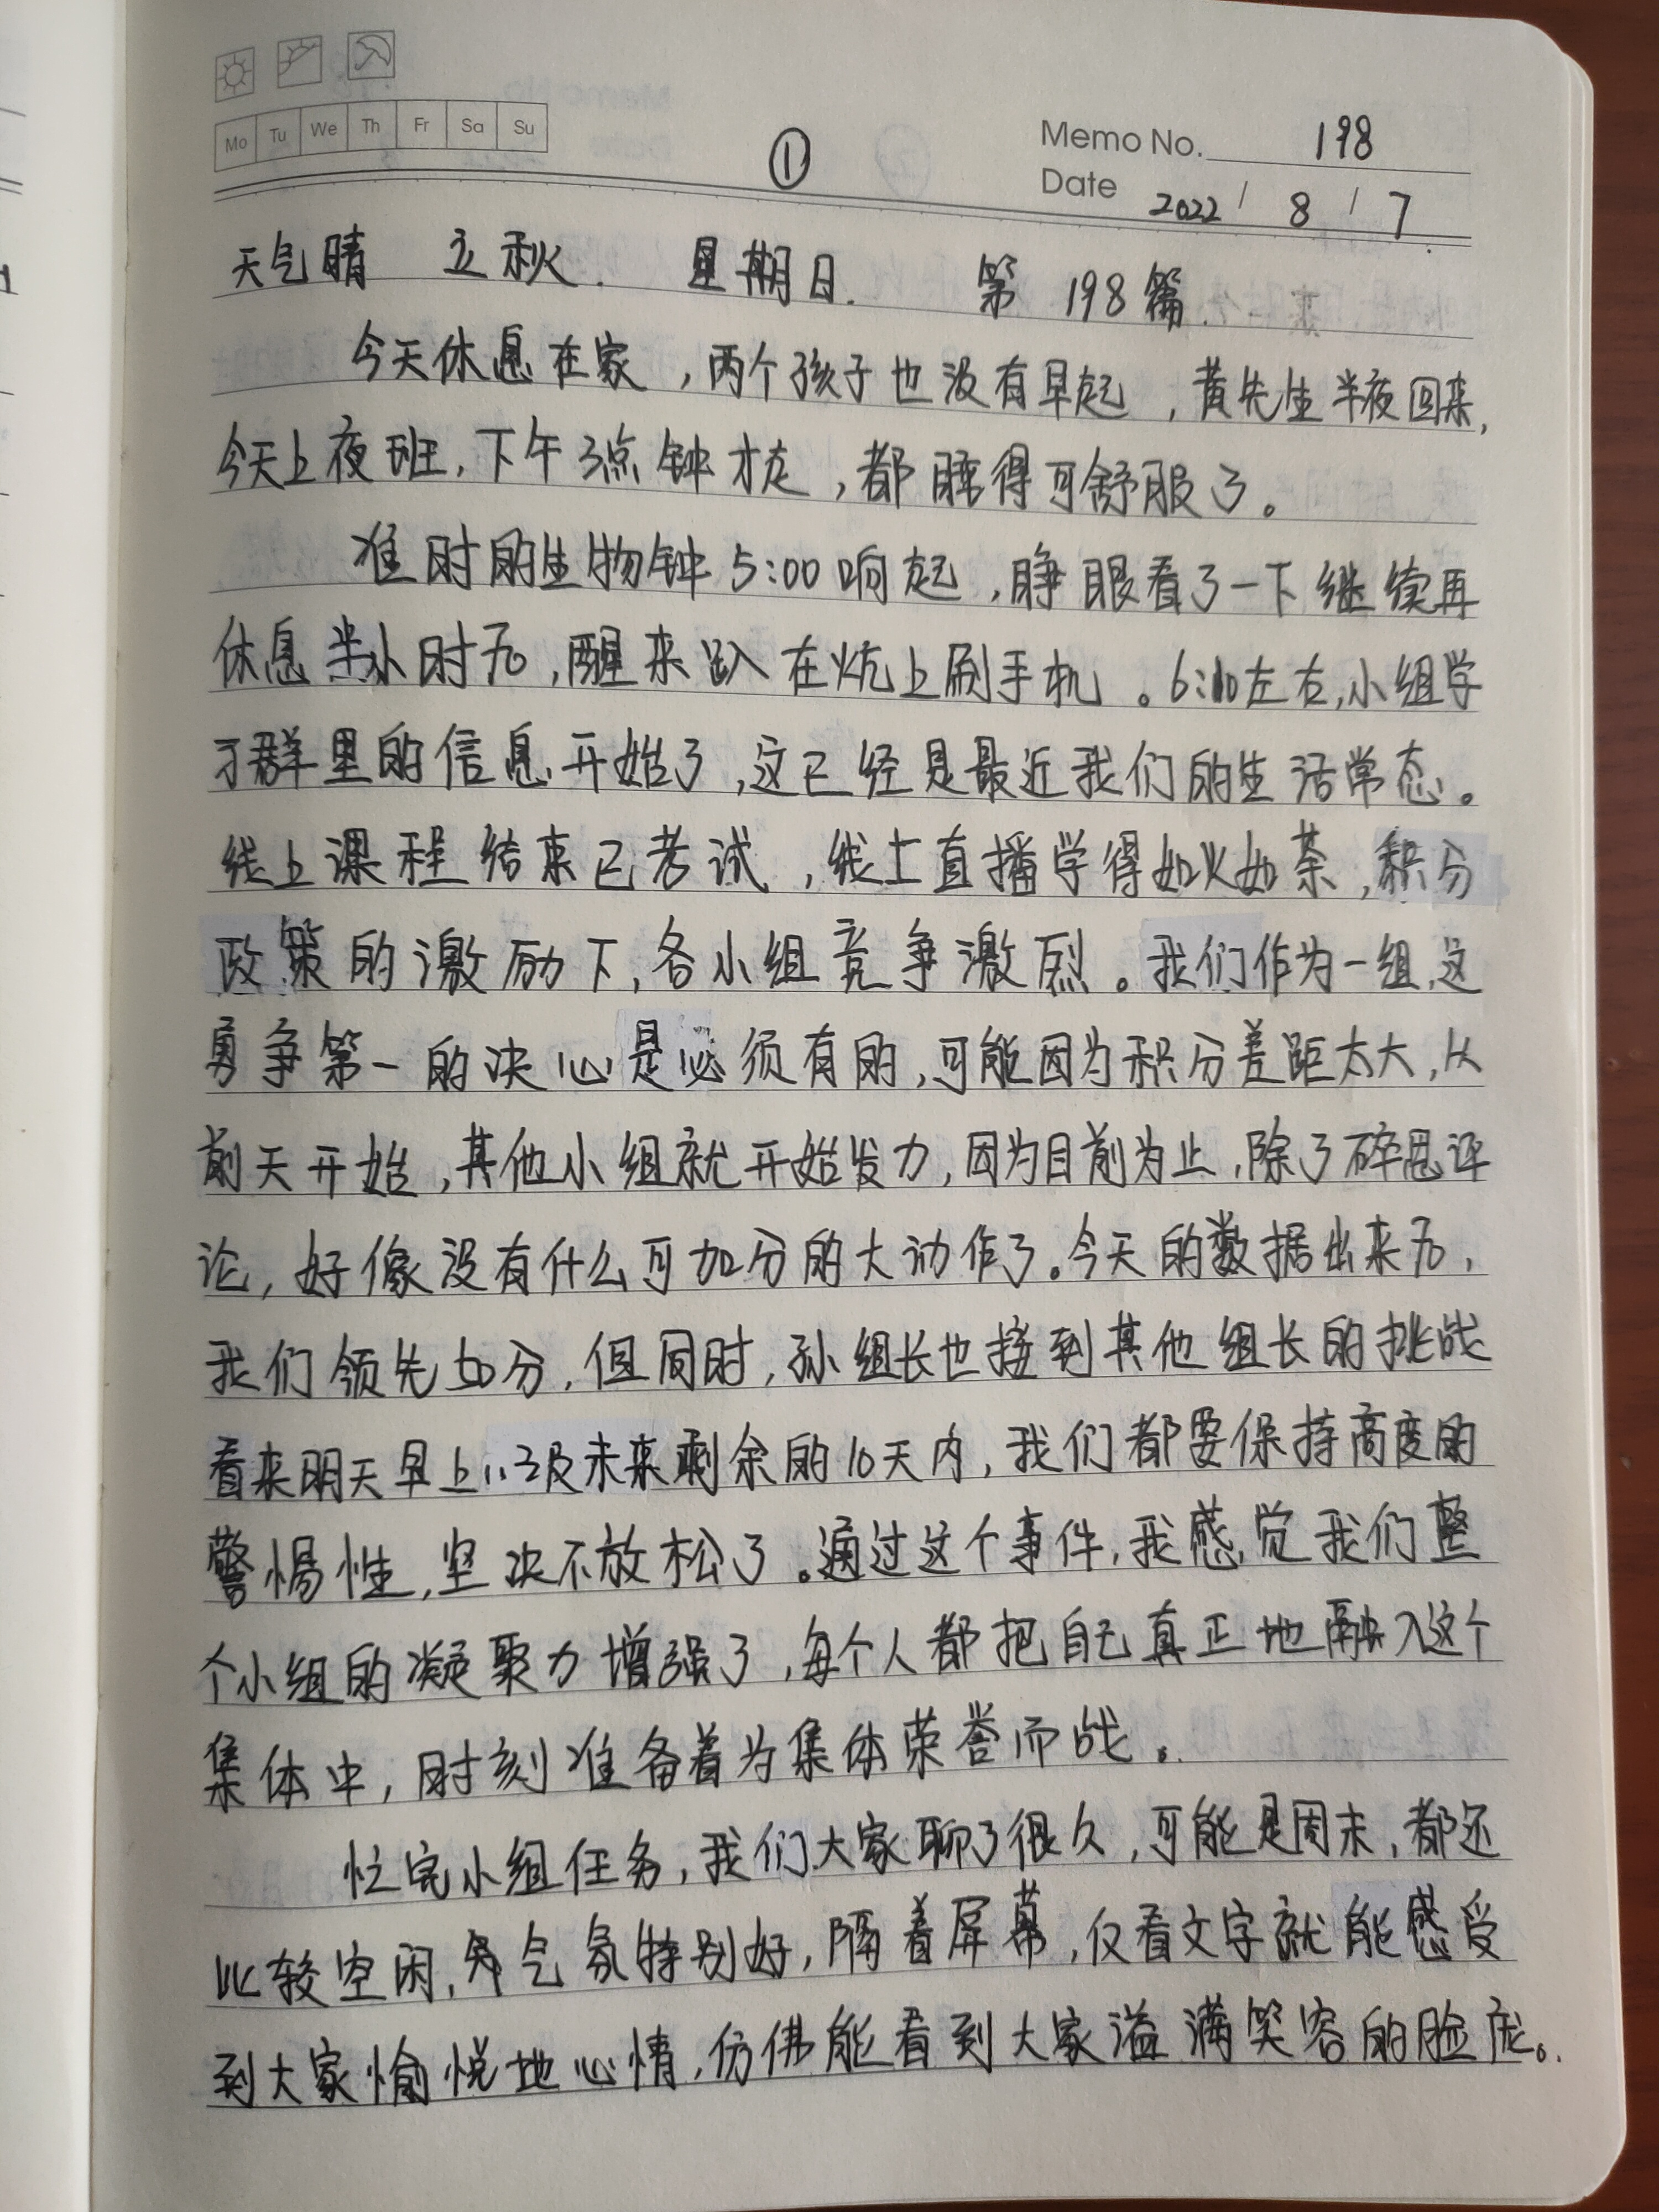 Mo Tu We Th Fr Sa Su
①
Memo No. 198
Date 2022 / 8 / 7
天气晴 立秋. 星期日. 第198篇.
今天休息在家,两个孩子也没有早起,黄先生半夜回来,
今天上夜班,下午3点钟才走,都睡得可舒服了。
准时的生物钟5:00响起,睁眼看了一下继续再
休息半小时后,醒来趴在炕上刷手机。6:10左右,小组学
习群里的信息开始了,这已经是最近我们的生活常态。
线上课程结束已考试,线上直播学得如火如荼,积分
政策的激励下,各小组竞争激烈。我们作为一组,这
勇争第一的决心是必须有的,可能因为积分差距太大,从
前天开始,其他小组就开始发力,因为目前为止,除了碎思评
论,好像没有什么可加分的大动作了。今天的数据出来后,
我们领先50分,但同时,孙组长也接到其他组长的挑战
看来明天早上以及未来剩余的10天内,我们都要保持高度的
警惕性,坚决不放松了。通过这个事件,我感觉我们整
个小组的凝聚力增强了,每个人都把自己真正地融入这个
集体中,时刻准备着为集体荣誉而战。
忙完小组任务,我们大家聊了很久,可能是周末,都还
比较空闲,气氛特别好,隔着屏幕,仅看文字就能感受
到大家愉悦地心情,仿佛能看到大家溢满笑容的脸庞。